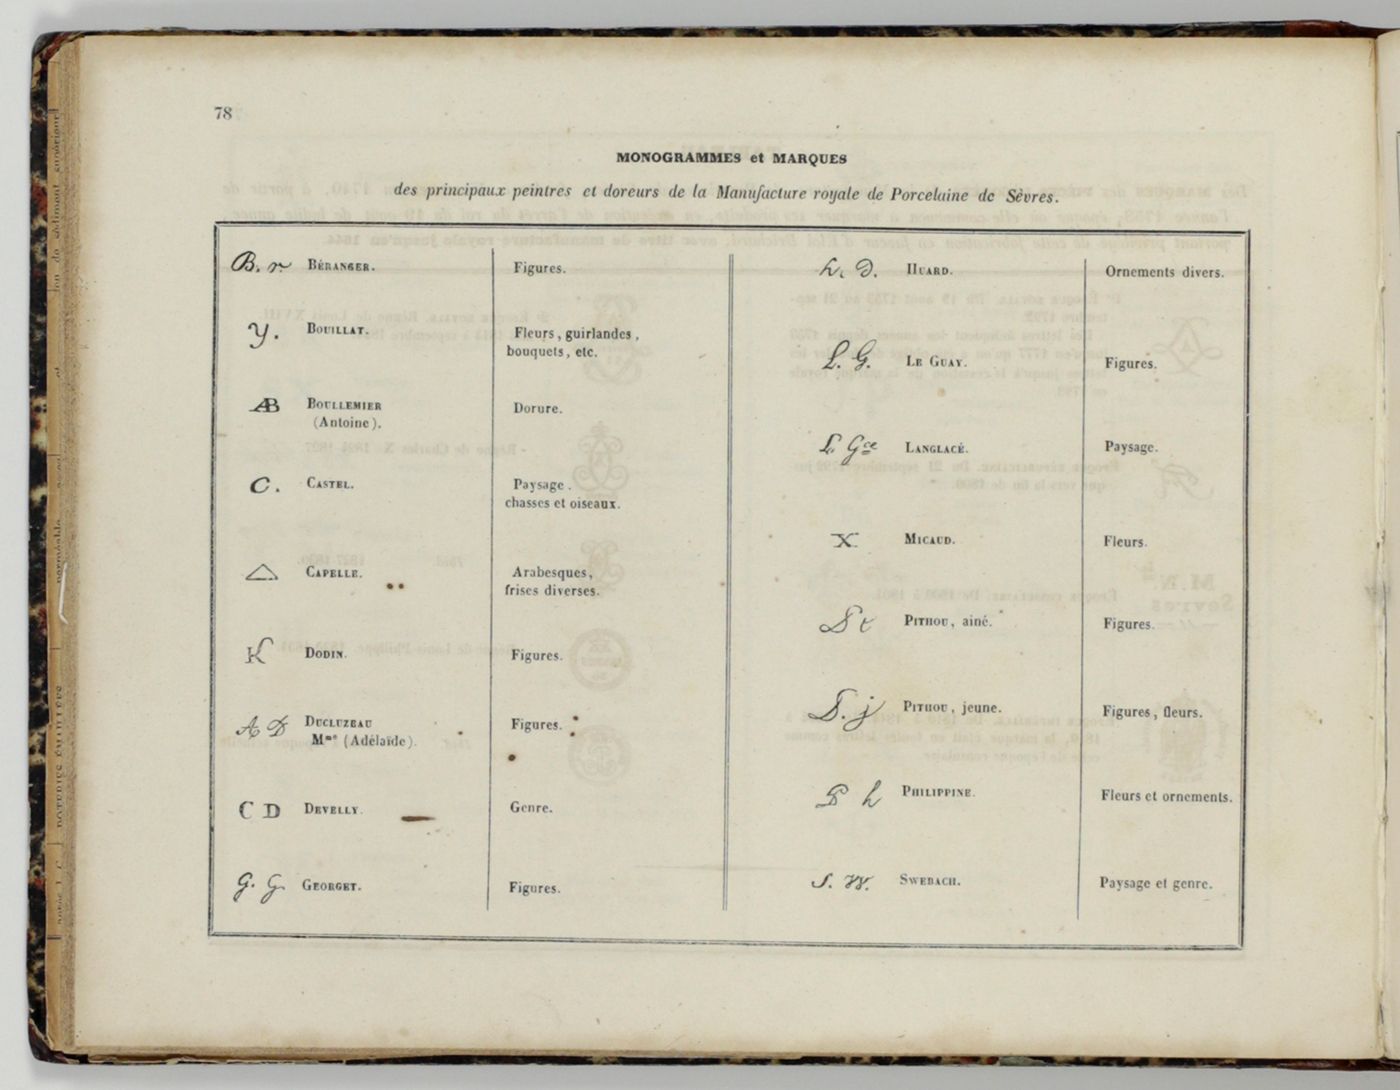 78
MONOGRAMMES et MARQUES
des principaux peintres et doreurs de la Manufacture royale de Porcelaine de Sèvres.
B. r BÉRANGER. Figures.
Y. BOUILLAT. Fleurs, guirlandes,
bouquets, etc.
AB BOULLEMIER Dorure.
(Antoine).
C. CASTEL. Paysage.
chasses et oiseaux.
CAPELLE. Arabesques,
frises diverses.
K DODIN. Figures.
A D DUCLUZEAU Figures.
Mme (Adélaïde).
C D DEVELLY. Genre.
G. G. GEORGET. Figures.
h. D. HUARD. Ornements divers.
L. G. LE GUAY. Figures.
L. Gce LANGLACÉ. Paysage.
X. MICAUD. Fleurs.
PITHOU, ainé. Figures.
j PITHOU, jeune. Figures, fleurs.
P h PHILIPPINE. Fleurs et ornements.
S. W. SWEBACH. Paysage et genre.